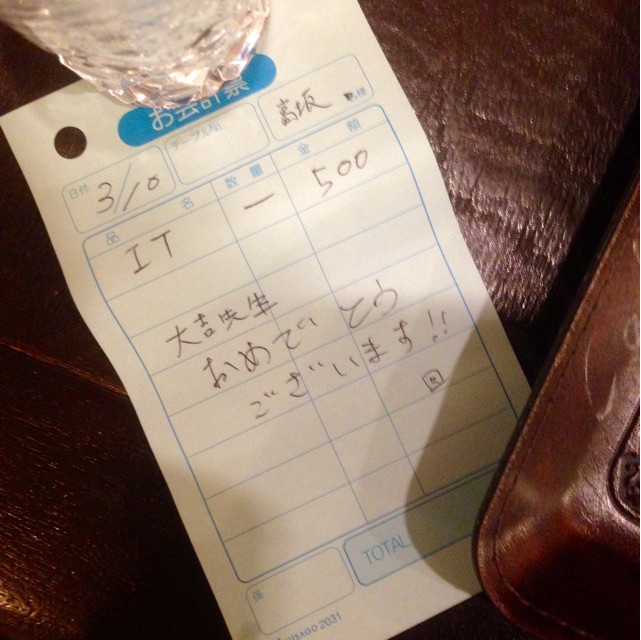 お会計票
日付 3/10
テーブルNo
高坂 様
品 名 数 量 金 額
IT 一 500
大吉先生
おめでとう
ございます!!
回
TOTAL
係
HISAGO 2031